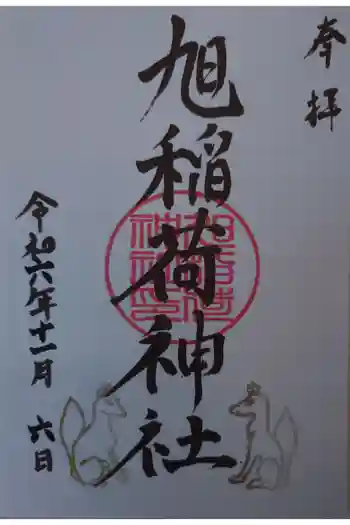 奉拝
旭稲荷神社
令和六年十一月 六日